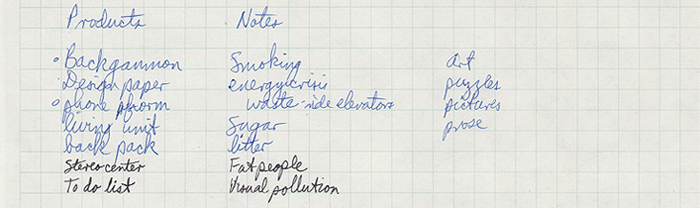 Products Notes
Backgammon Smoking art
Design paper energy crisis puzzles
phone waste-side elevators pictures
living unit Sugar prose
back pack litter
Stereo center Fat people
To do list Visual pollution